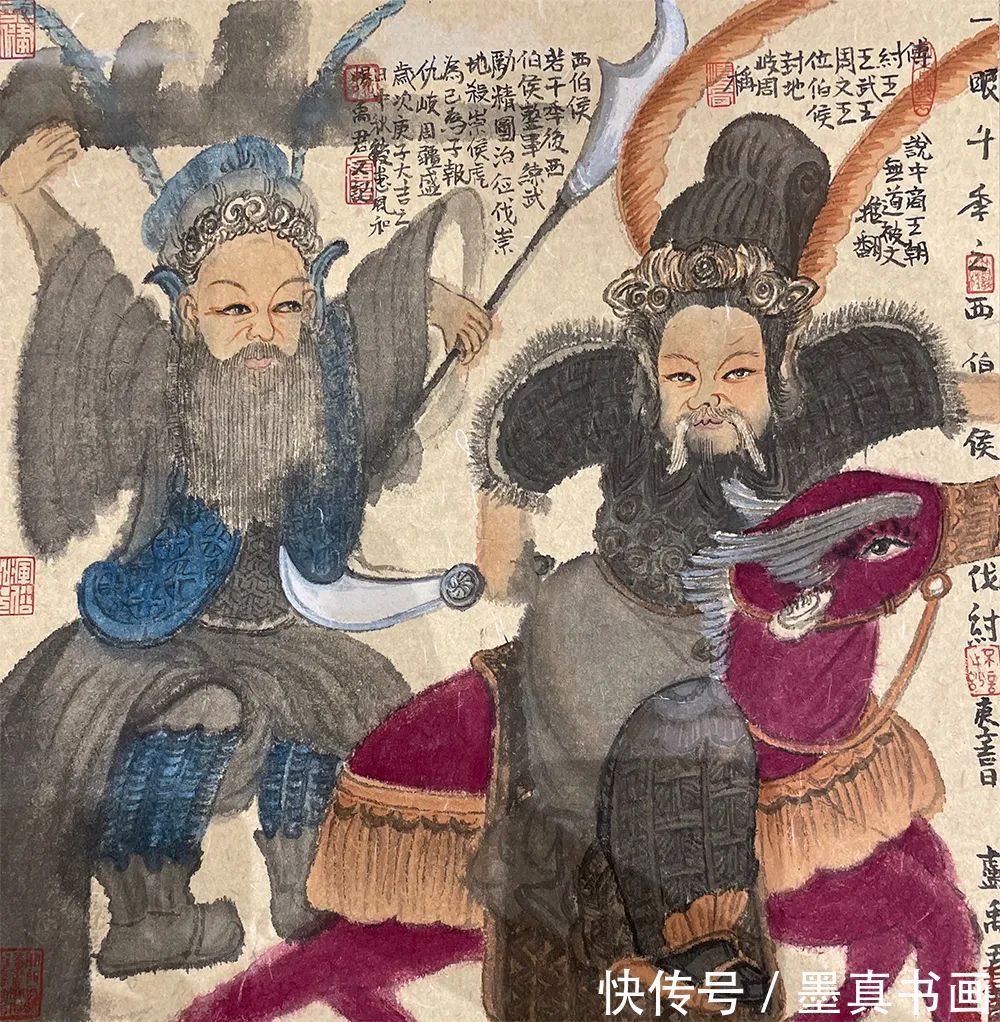 一眼千年之西伯侯伐紂
傳說中商王朝
紂王無道被文
王武王推翻
周文王
位伯侯
封地
岐周
稱
西伯侯
若干年後西
伯侯整軍練武
勵精圖治征伐崇
地殺崇侯虎
為己為子報
仇岐周疆盛
歲次庚子大吉之
禹君又記
快传号 / 墨真书画